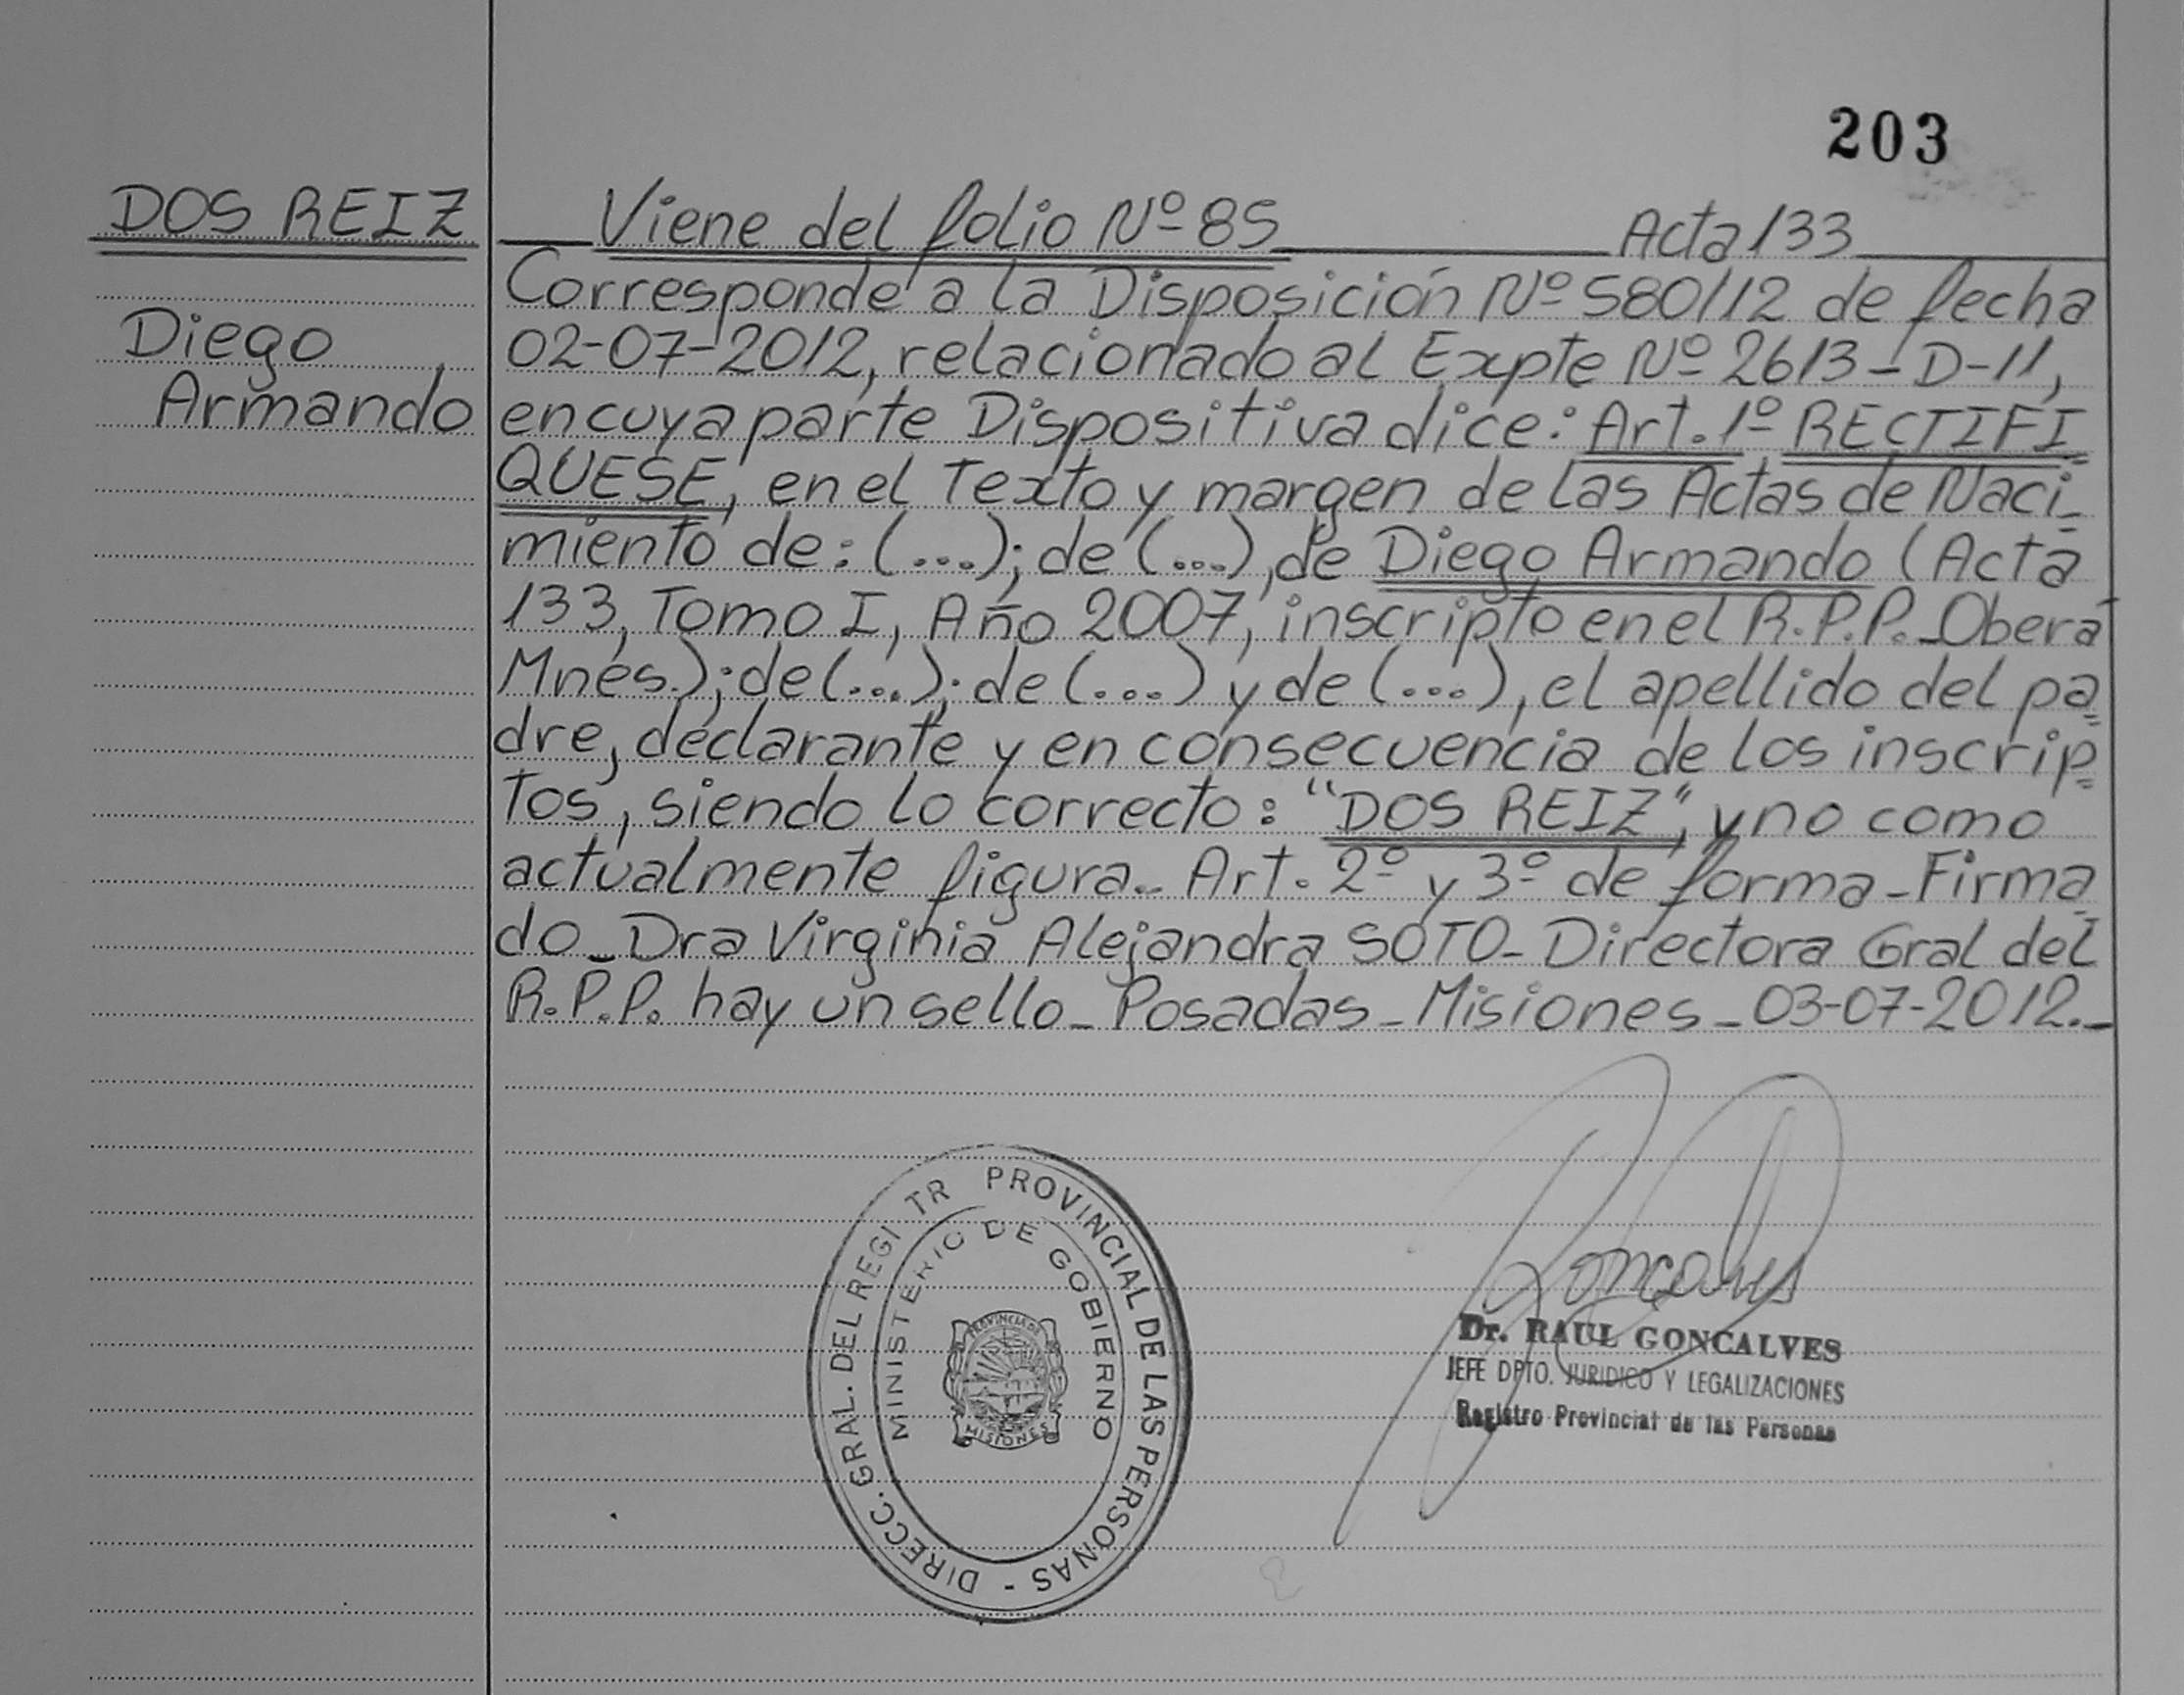 203
DOS REIZ
Diego
Armando
Viene del folio Nº 85 Acta 133
Corresponde a la Disposición Nº 580/12 de fecha
02-07-2012, relacionado al Expte Nº 2613-D-11,
en cuya parte Dispositiva dice: Art. 1º RECTIFI
QUESE, en el Texto y margen de las Actas de Naci-
miento de: (...); de (...), de Diego Armando (Acta
133, Tomo I, Año 2007, inscripto en el R.P.P. - Oberá
Mnes.); de (...); de (...) y de (...), el apellido del pa=
dre, declarante y en consecuencia de los inscrip=
tos, siendo lo correcto: "DOS REIZ", y no como
actualmente figura.- Art. 2º y 3º de forma - Firma
do - Dra Virginia Alejandra SOTO - Directora Gral del
R.P.P. hay un sello - Posadas - Misiones - 03-07-2012.-
DIRECC. GRAL. DEL REGI TR PROVINCIAL DE LAS PERSONAS -
MINISTERIO DE GOBIERNO
PROVINCIA DE
MISIONES
Goncalves
Dr. RAUL GONCALVES
JEFE DPTO. JURIDICO Y LEGALIZACIONES
Registro Provincial de las Personas